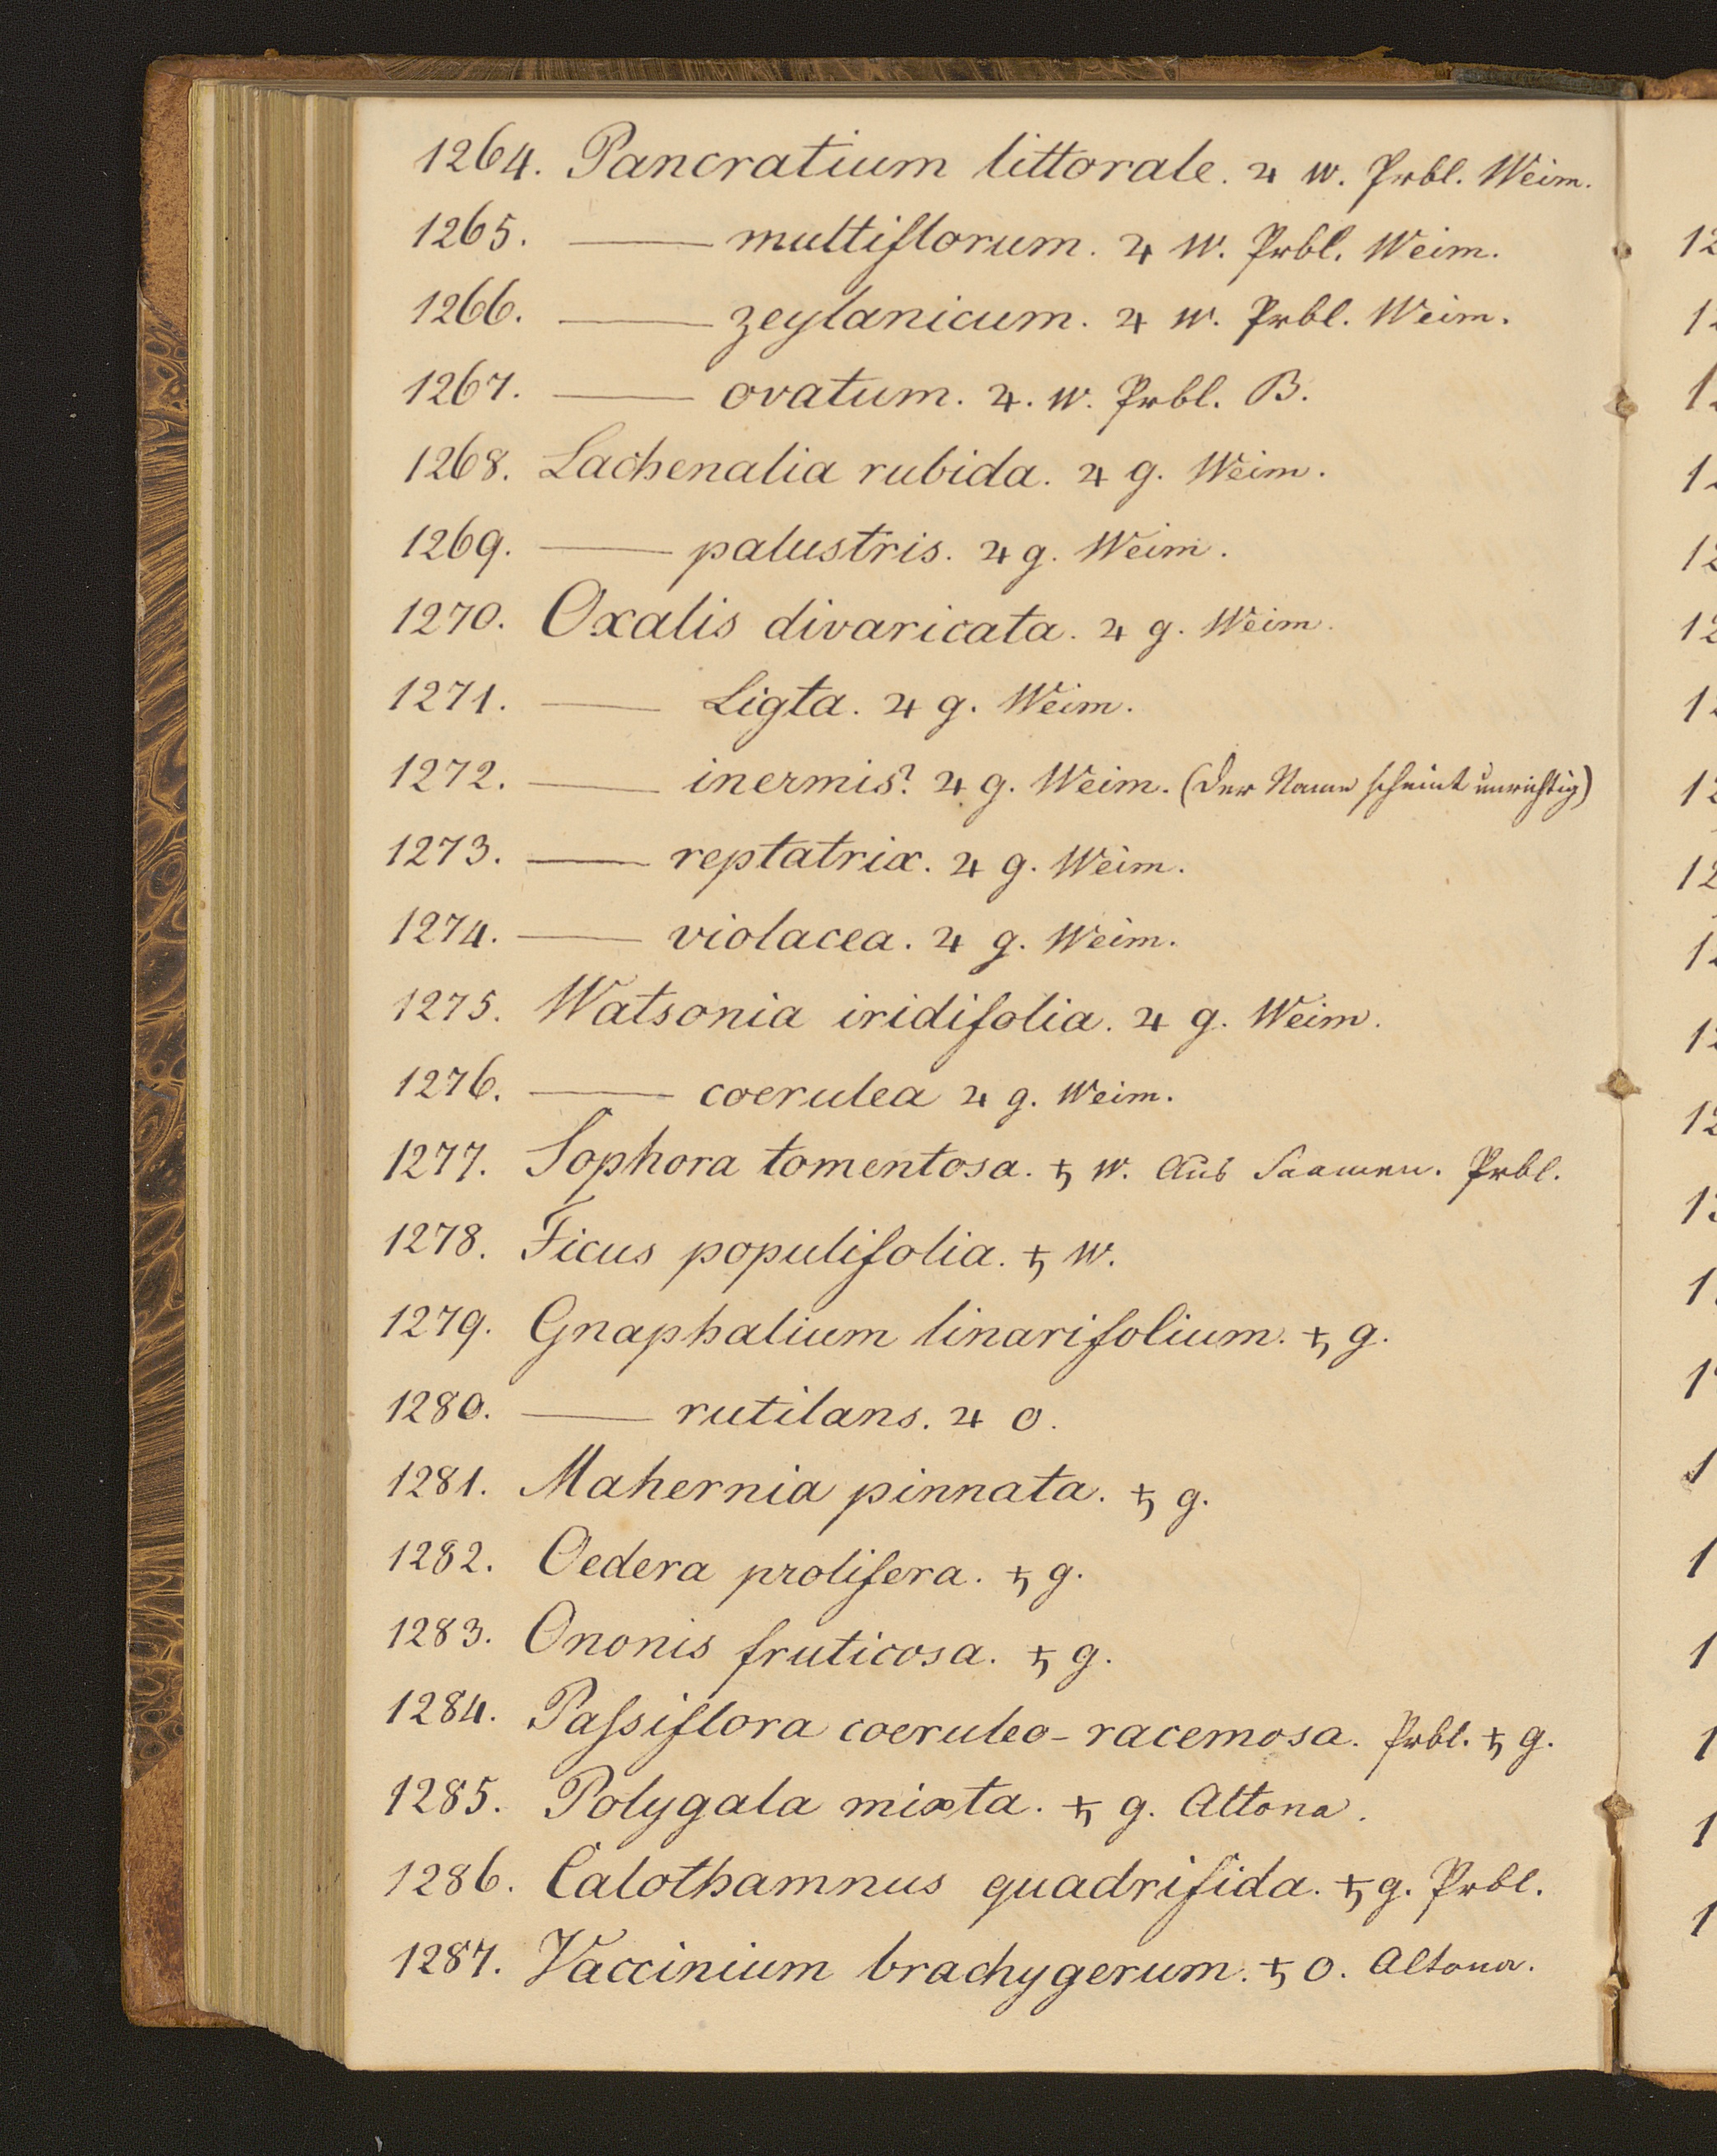 1264. Pancratium littorale. ♃ w. Prbl. Weim.
1265. —— multiflorum. ♃ w. Prbl. Weim.
1266. —— zeylanicum. ♃ w. Prbl. Weim.
1267. —— ovatum. ♃. w. Prbl. B.
1268. Lachenalia rubida. ♃ g. Weim.
1269. —— palustris. ♃ g. Weim.
1270. Oxalis divaricata. ♃ g. Weim.
1271. —— Ligta. ♃ g. Weim.
1272. —— inermis? ♃ g. Weim. (Der Name scheint unrichtig)
1273. —— reptatrix. ♃ g. Weim.
1274. —— violacea. ♃ g. Weim.
1275. Watsonia iridifolia. ♃ g. Weim.
1276. —— coerulea ♃ g. Weim.
1277. Sophora tomentosa. ♄ w. Aus Saamen. Prbl.
1278. Ficus populifolia. ♄ w.
1279. Gnaphalium linarifolium. ♄ g.
1280. —— rutilans. ♃ o.
1281. Mahernia pinnata. ♄ g.
1282. Oedera prolifera. ♄ g.
1283. Ononis fruticosa. ♄ g.
1284. Paſsiflora coeruleo-racemosa. Prbl. ♄ g.
1285. Polygala mixta. ♄ g. Altona.
1286. Calothamnus quadrifida. ♄ g. Prbl.
1287. Vaccinium brachygerum. ♄ o. Altona.